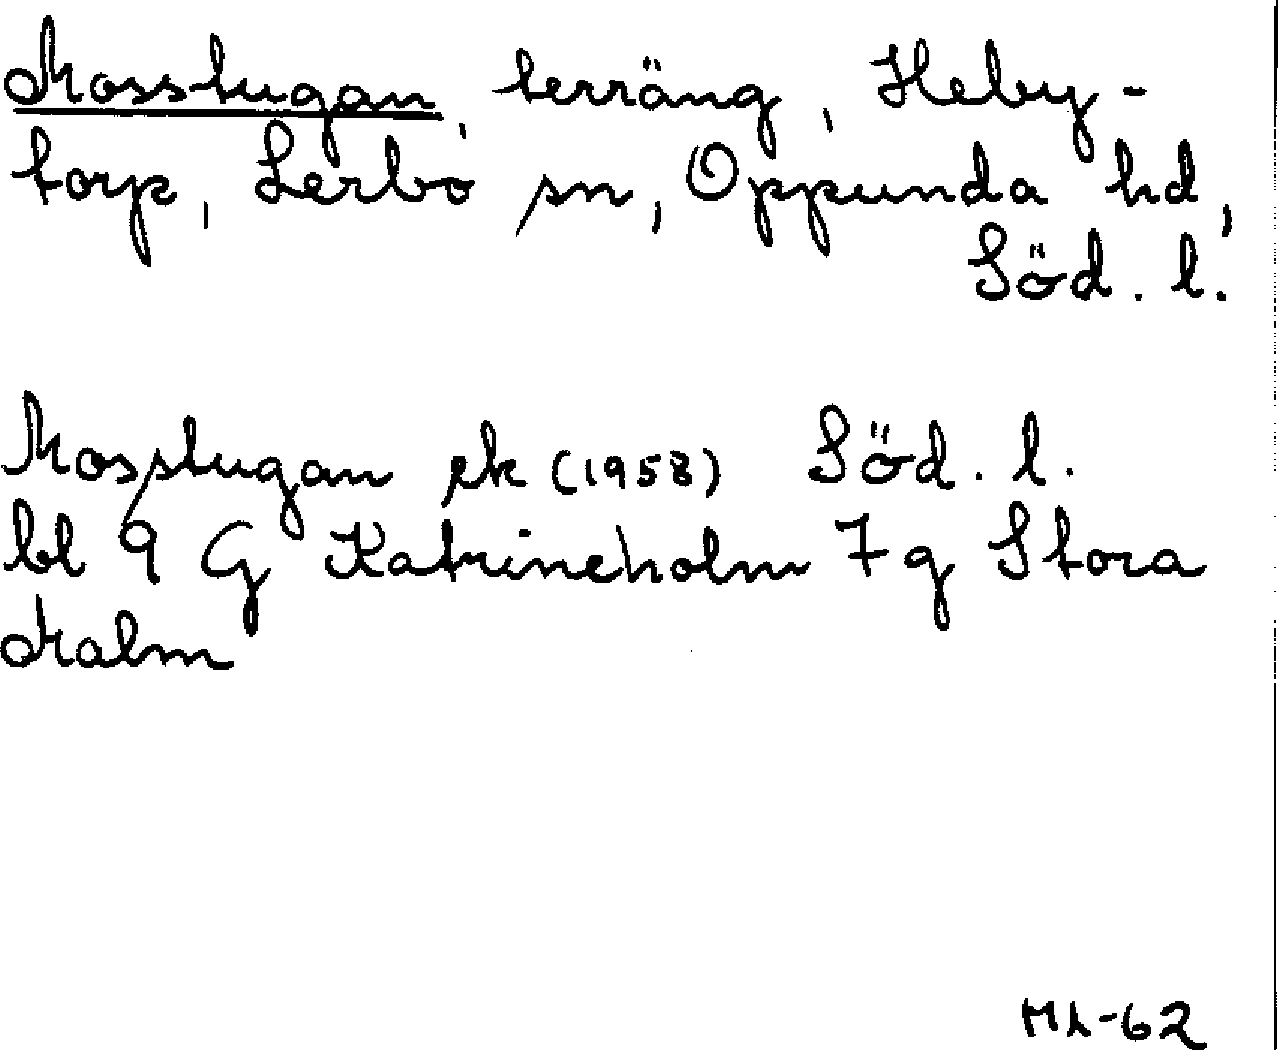 Mosstugan, terräng, Heby-
torp, Lerbo sn, Oppunda hd,
Söd. l.
Mosstugan ek (1958) Söd. l.
bl 9 G Katrineholm 7 g Stora
Malm
ML-62